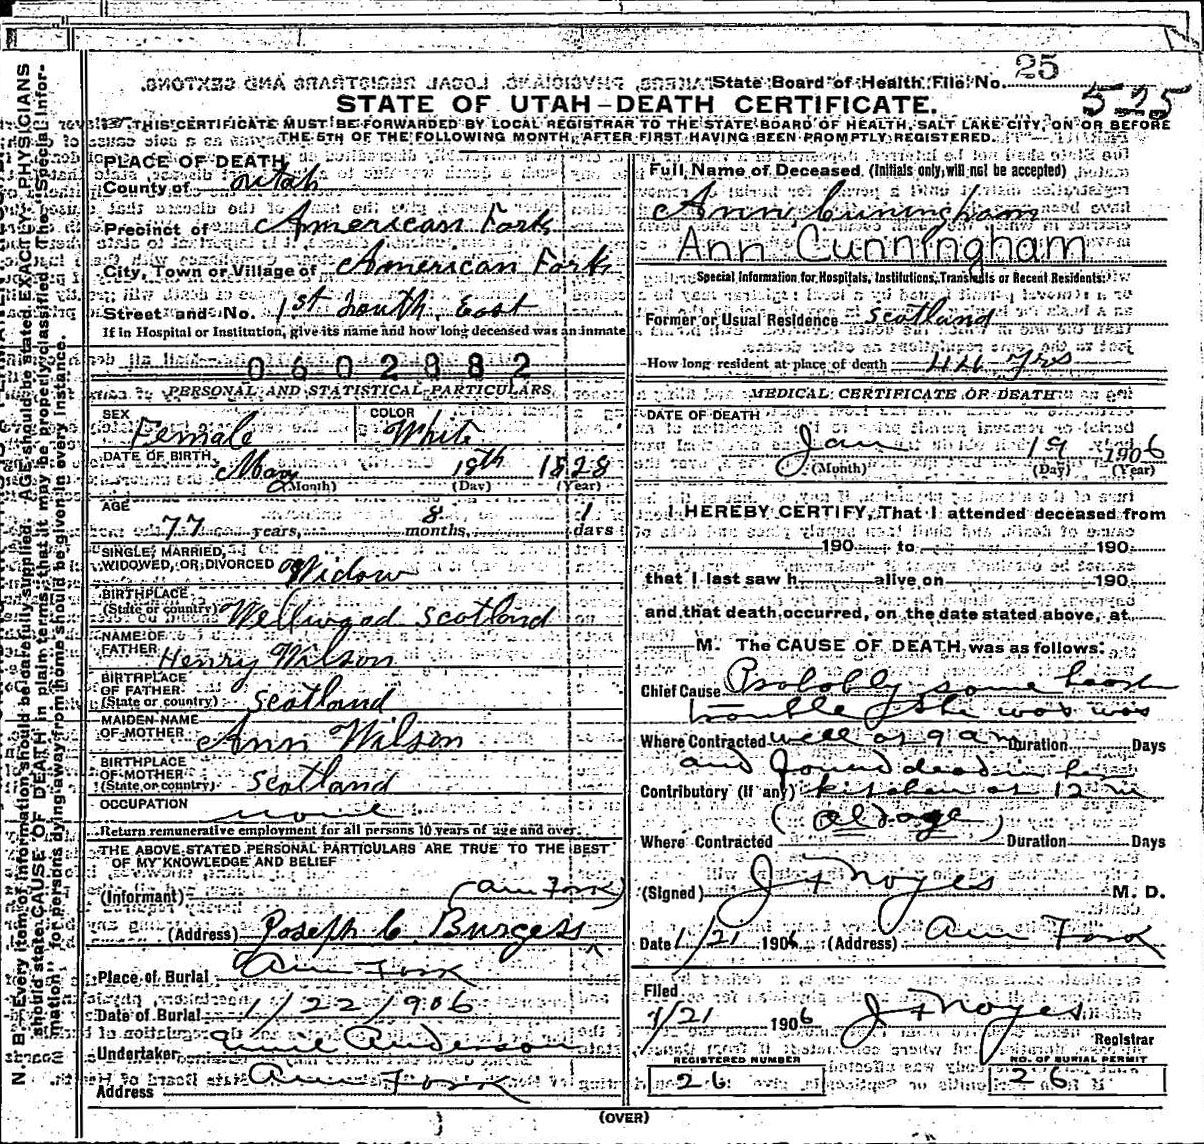 State Board of Health File No. 25
525
STATE OF UTAH-DEATH CERTIFICATE.
THIS CERTIFICATE MUST BE FORWARDED BY LOCAL REGISTRAR TO THE STATE BOARD OF HEALTH, SALT LAKE CITY, ON OR BEFORE
THE 5TH OF THE FOLLOWING MONTH, AFTER FIRST HAVING BEEN PROMPTLY REGISTERED.
N. B. Every item of information should be carefully supplied. AGE should be stated EXACTLY. PHYSICIANS
should state CAUSE OF DEATH in plain terms, that it may be properly classified. The "Special Infor-
mation" for persons dying away from home should be given in every instance.
PLACE OF DEATH
County of Utah
Precinct of American Fork
City, Town or Village of American Fork
Street and No. 1st South East
If in Hospital or Institution, give its name and how long deceased was an inmate
0602982
PERSONAL AND STATISTICAL PARTICULARS
SEX Female COLOR White
DATE OF BIRTH May 18th 1828
(Month) (Day) (Year)
AGE
77 years, 8 months, 1 days
SINGLE, MARRIED,
WIDOWED, OR DIVORCED Widow
BIRTHPLACE
(State or country) Wellwood Scotland
NAME OF
FATHER Henry Wilson
BIRTHPLACE
OF FATHER
(State or country) Scotland
MAIDEN NAME
OF MOTHER Ann Wilson
BIRTHPLACE
OF MOTHER
(State or country) Scotland
OCCUPATION none
Return remunerative employment for all persons 10 years of age and over.
THE ABOVE STATED PERSONAL PARTICULARS ARE TRUE TO THE BEST
OF MY KNOWLEDGE AND BELIEF
(Informant) (Am Fork)
(Address) Joseph C. Burgess
Place of Burial Am Fork
Date of Burial 1/22/906
Undertaker Anderson
Address Am Fork
Full Name of Deceased. (Initials only, will not be accepted)
Ann Cuningham
Ann Cunningham
Special Information for Hospitals, Institutions, Transients or Recent Residents.
Former or Usual Residence Scotland
How long resident at place of death 44 yrs
MEDICAL CERTIFICATE OF DEATH
DATE OF DEATH
Jan 19 1906
(Month) (Day) (Year)
I HEREBY CERTIFY, That I attended deceased from
190 to 190
that I last saw h alive on 190
and that death occurred, on the date stated above, at
M. The CAUSE OF DEATH was as follows:
Chief Cause Probably some heart
trouble She was was
Where Contracted well at 9 am Duration Days
and found dead in her
Contributory (If any) kitchen at 12 m
(old age)
Where Contracted Duration Days
(Signed) J F Noyes M. D.
Date 1/21 1906 (Address) Am Fork
Filed
1/21 1906 J F Noyes
Registrar
REGISTERED NUMBER NO. OF BURIAL PERMIT
26 26
(OVER)